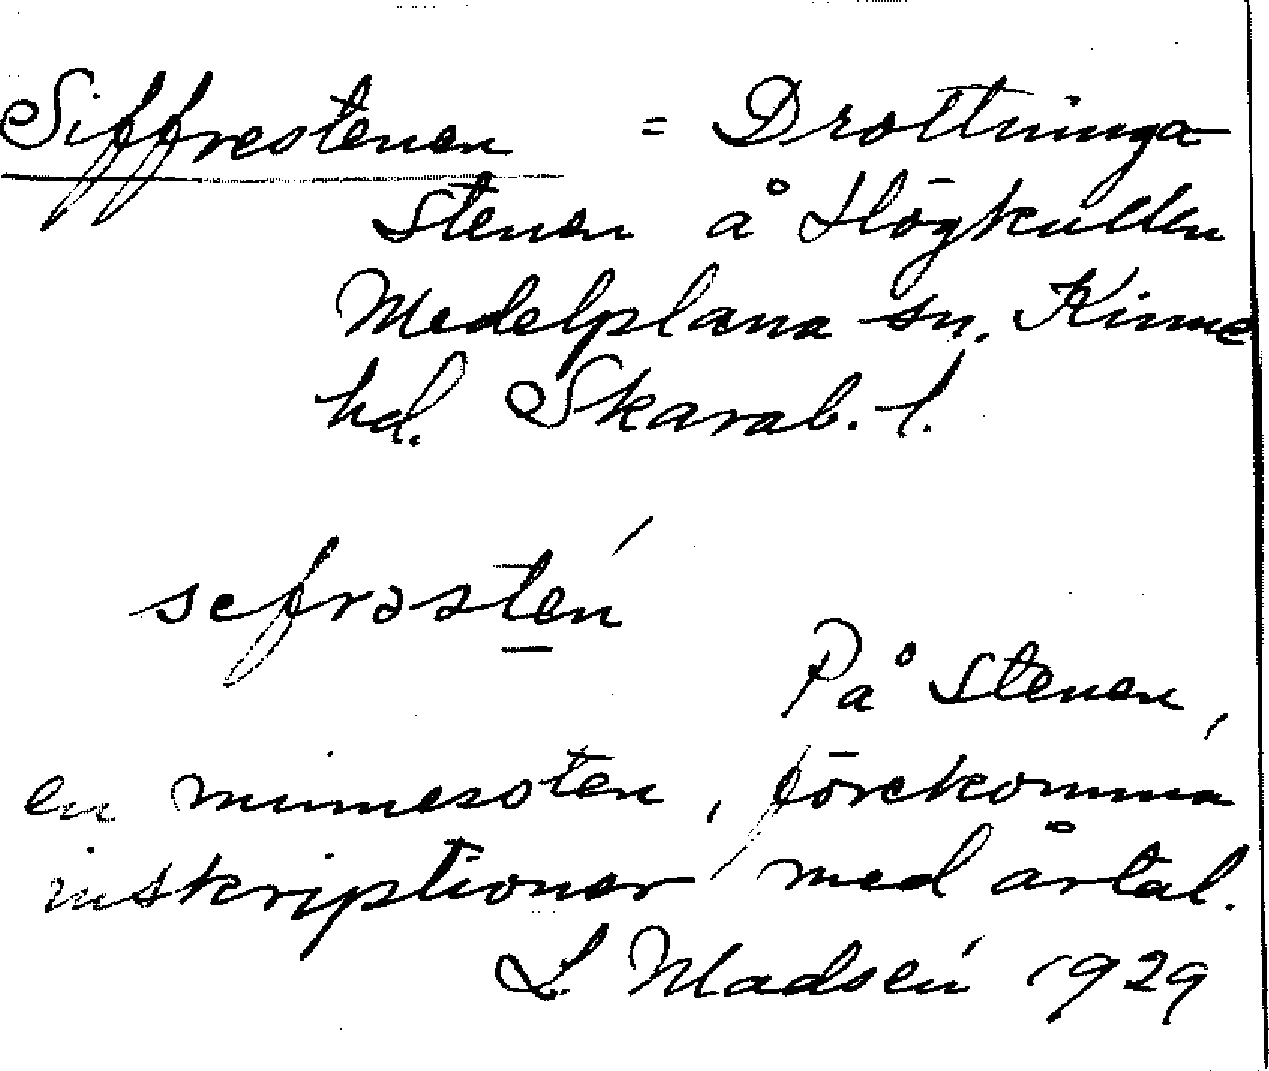 Siffrestenen = Drottninga
stenen å Högkullen
Medelplana sn. Kinne
hd. Skarab. l.
sefrəstén
På stenen,
en minnessten, förekomma
inskriptioner med årtal.
L Madsén 1929